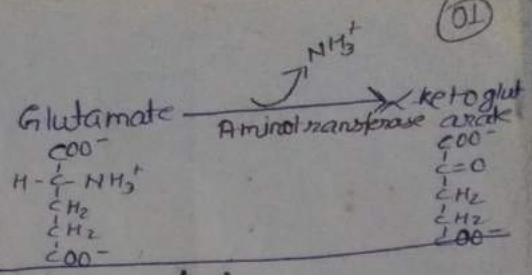 01
NH3+
Glutamate → α ketoglut
Aminotransferase arate
COO-
H-C-NH3+
CH2
CH2
COO-
COO-
C=O
CH2
CH2
COO-